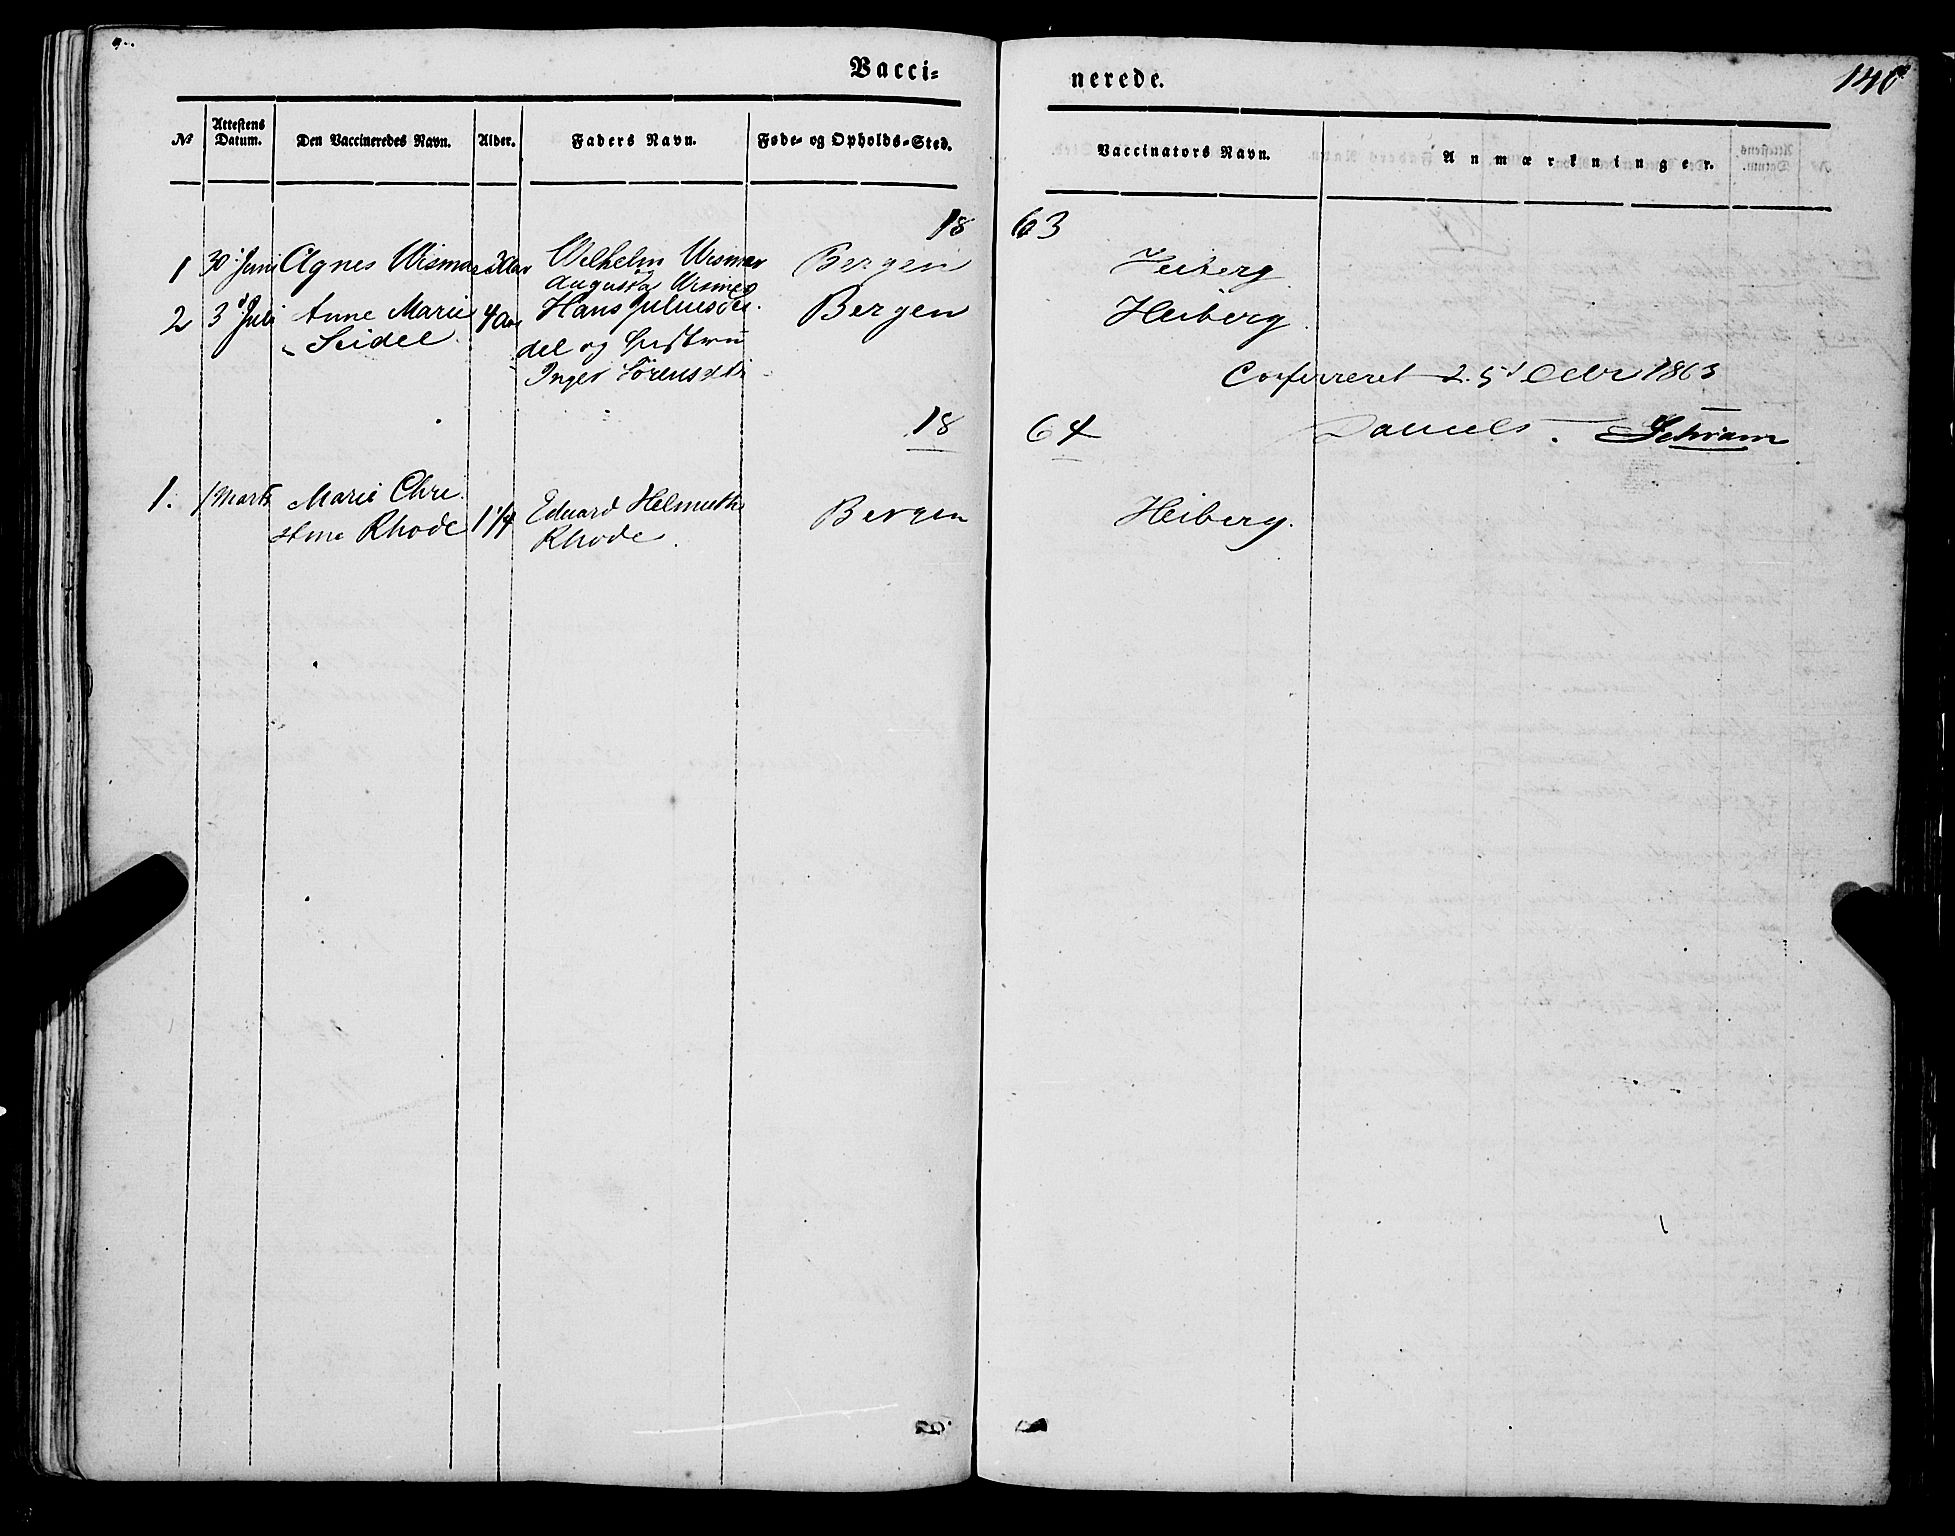 Vacci= nerede. 140
No Attestens Datum. Den Vaccineredes Navn. Alder. Faders Navn. Føde= og Opholds=Sted. Vaccinators Navn. Anmærkninger.
18 63
1 30 Juni Agnes Wismar Wilhelm Wismar Bergen Heiberg
Augusta Wismar
2 3 Juli Anne Marie 4 Aar Hans Julius Sei= Bergen Heiberg.
Seidel del og Hustru
Inger Sørensdtr
Conferreret 2. 5 1863
18 64 Daniels. Schram
1. 1 Marts Marie Chri= 1 1/4 Eduard Helmuth Bergen Heiberg.
stine Rhode Rhode.